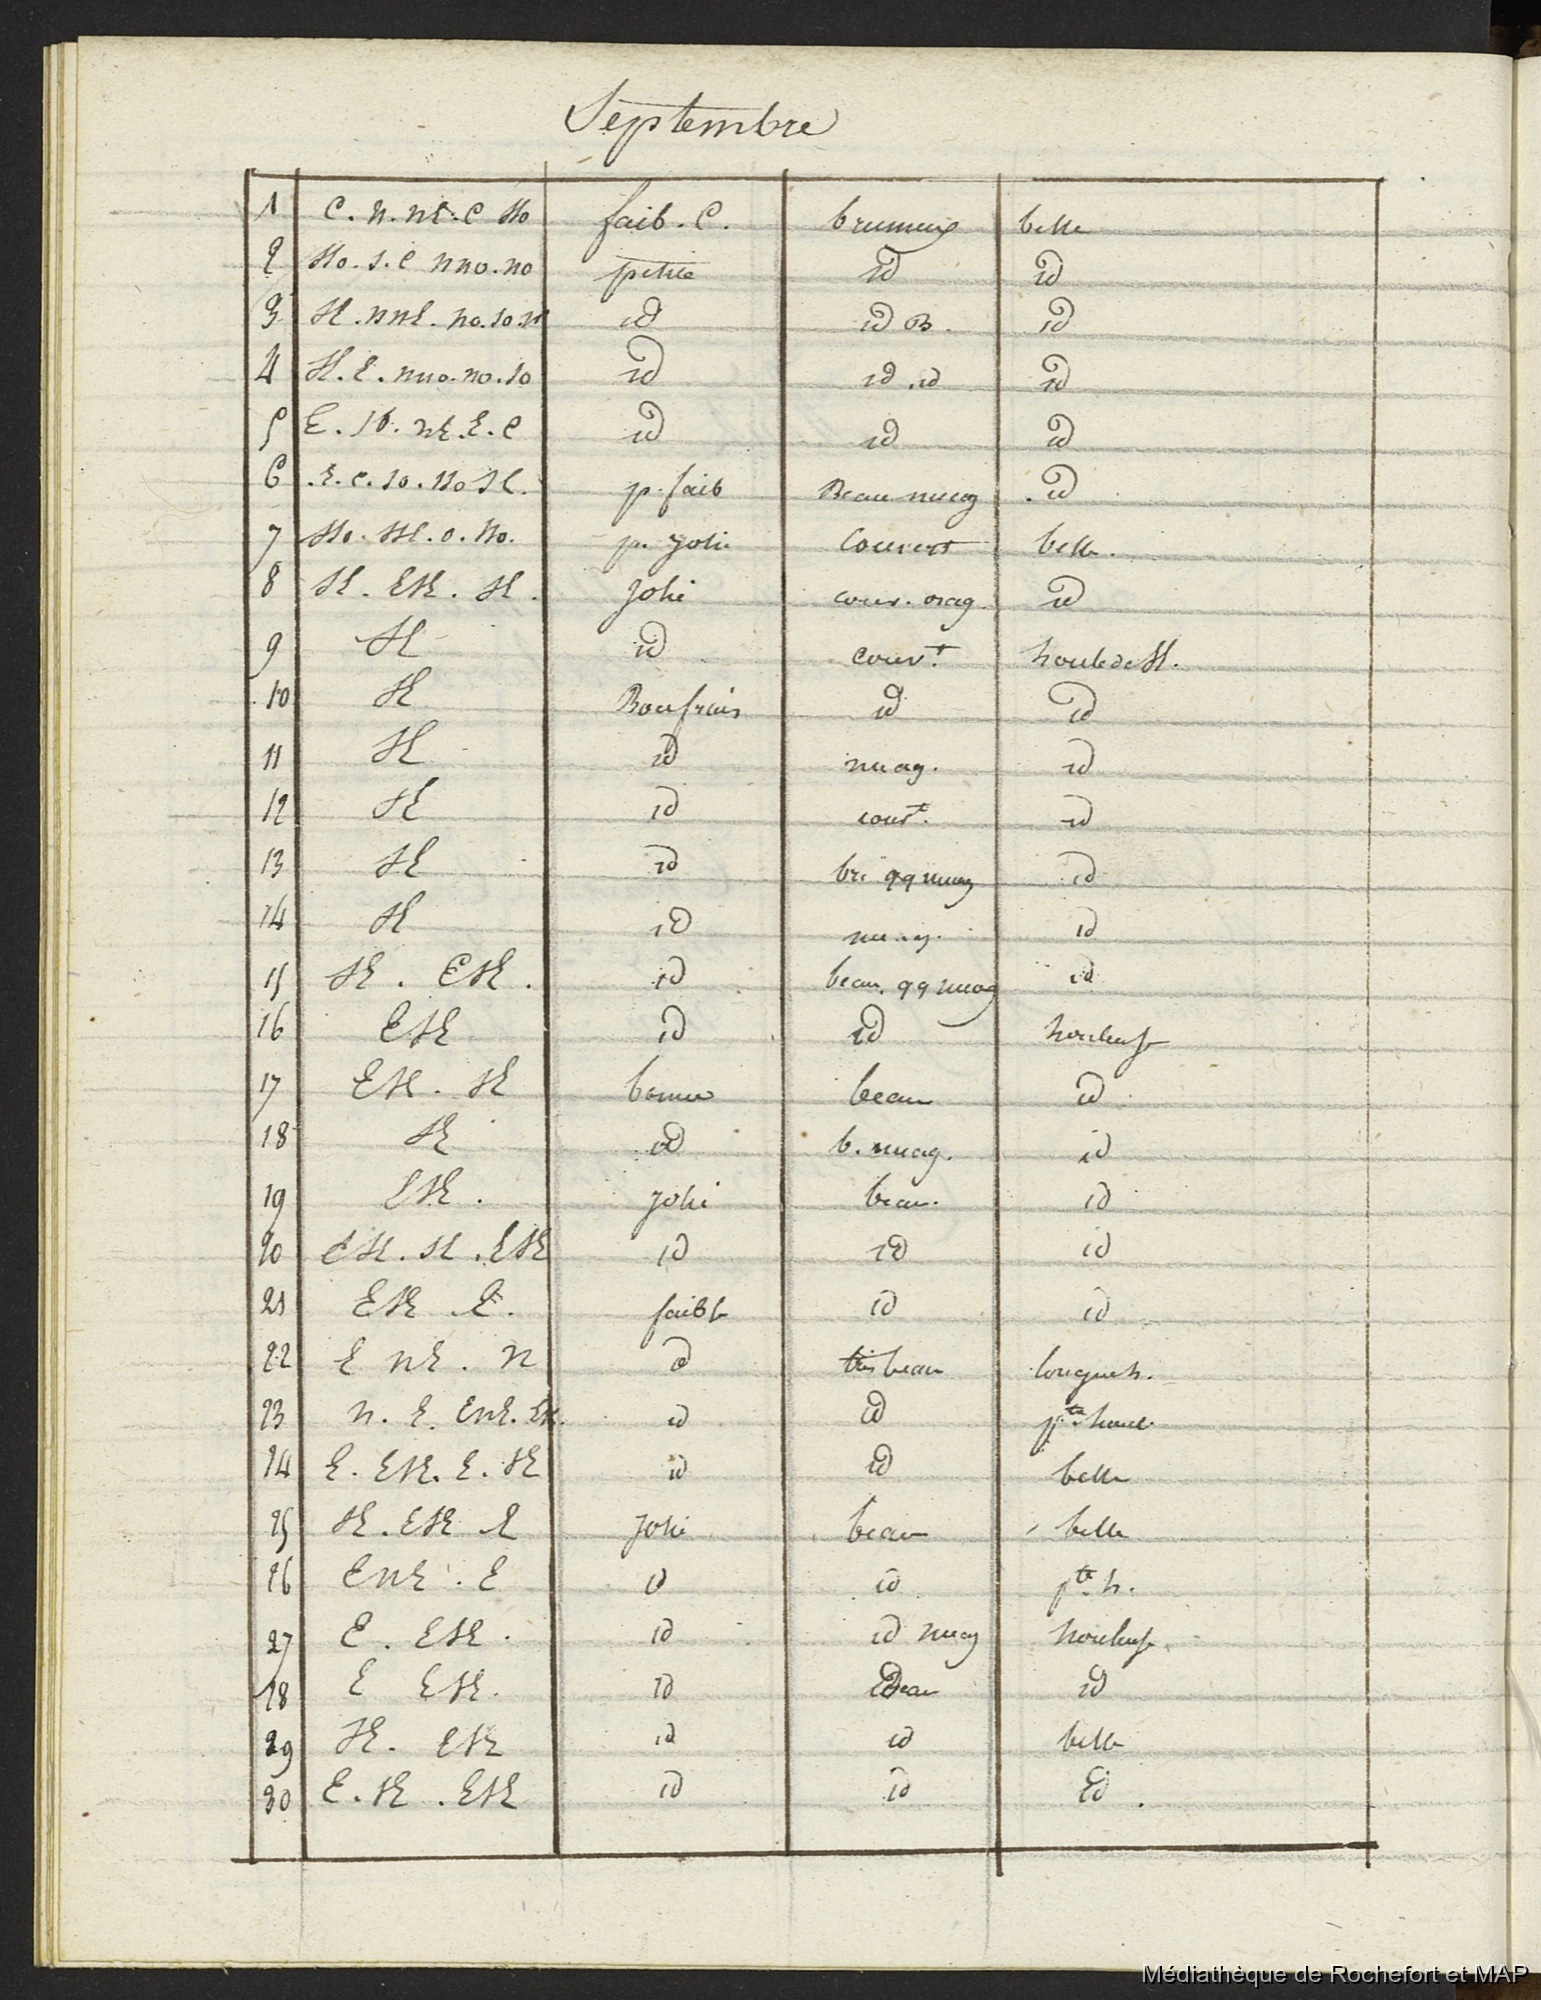 Septembre
1 C. N. NE. C NO faib. C. brumeux belle
2 NO. S. C NNO. NO petite id id
3 SE. NNE. NO. SO. id id B. id
4 SE. E. NNO. NO. SO id id. id id
5 E. SO. NE. E. C id id id
6 E. C. SO. NO SE. p. faib Beau nuag id
7 NO. SSE. O. NO. p. jolie Couvert belle.
8 SE. ESE. SE. Jolie couv. orag. id
9 SE id couv.t houle de SE.
10 SE Bon frais id id
11 SE id nuag. id
12 SE id couvt. id
13 SE id bri qq nuag id
14 SE id nuag. id
15 SE. ESE. id beau. qq nuag id
16 ESE id id houleuse
17 ESE. SE bonne beau id
18 SE id b. nuag. id
19 ESE. Jolie beau. id
20 ESE. SE. ESE id id id
21 ESE. E. faible id id
22 E NE. N id très beau longue h.
23 N. E. ENE. ESE. id id pte houl.
24 E. ESE. E. SE id id belle
25 SE. ESE. E Jolie beau belle
26 ENE. E id id pte h.
27 E. ESE. id id nuag houleuse
28 E ESE. id beau id
29 SE. ESE id id belle
30 E. SE. ESE id id id.
Médiathèque de Rochefort et MAP